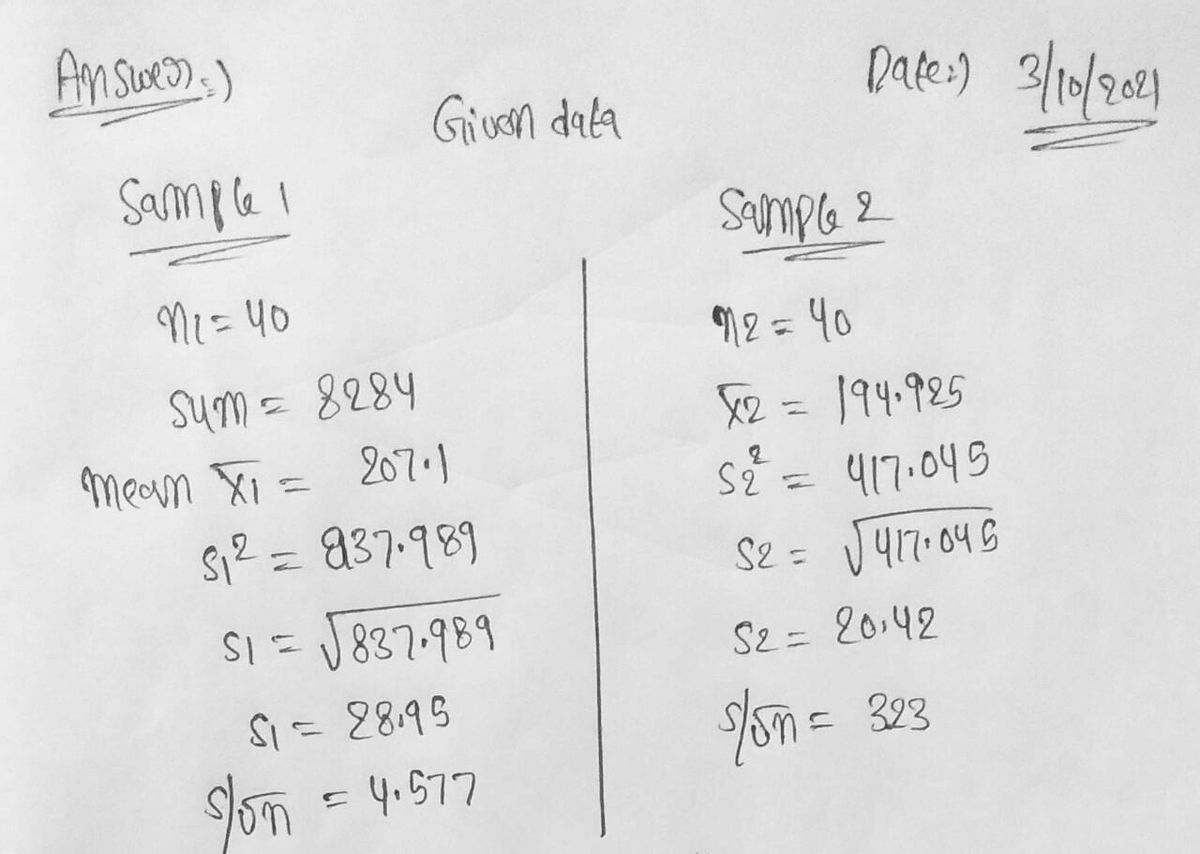 Answer:)
Date:) 3/10/2021
Given data
Sample 1
n1 = 40
sum = 8284
mean x̄1 = 207.1
s1² = 837.989
s1 = √837.989
s1 = 28.95
s/√n = 4.577
Sample 2
n2 = 40
x̄2 = 194.925
s2² = 417.045
s2 = √417.045
s2 = 20.42
s/√n = 323